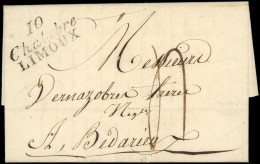 10
Chalabre
LIMOUX
Messieurs
Dernazobres frères
Negts
A, Bédarieux